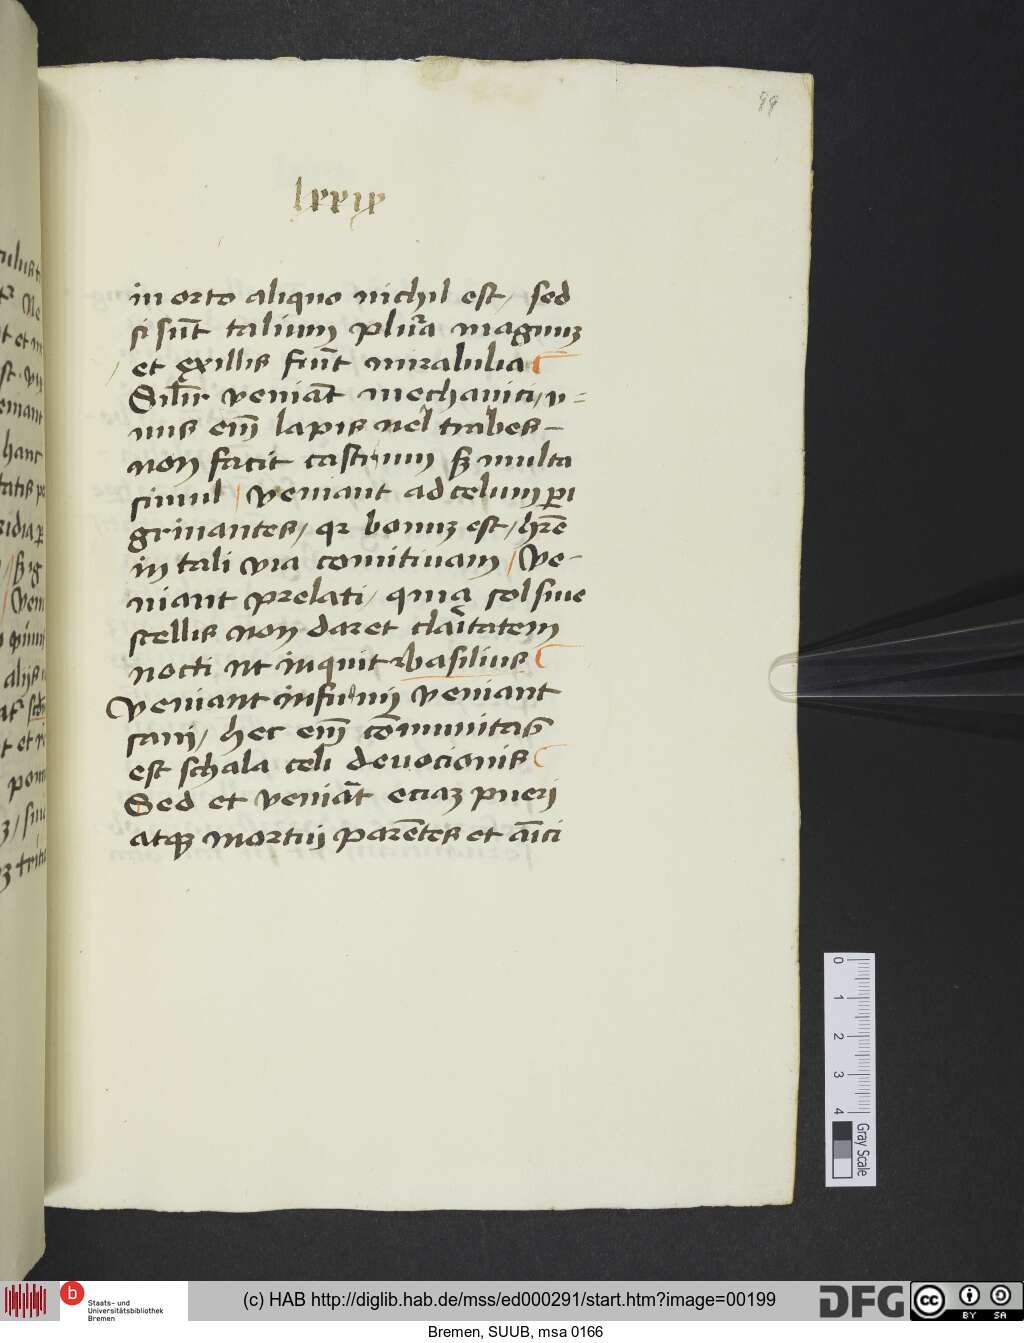 99
lxxix
in orto aliquo nichil est / sed
si sūt talium plura magnuꝫ
et exillis fiūt mirabilia
Silr veniāt mechanici / v=
nus em̄ lapis vel trabes –
non facit castrum sꝫ multa
simul / Veniant ad celum ꝑi
grinantes / qꝛ bonuꝫ est / hr̄e
in tali via comitiuam / Ve-
niant prelati / quia sol siue
stellis non daret claritatem
nocti ut inquit basilius
Veniant infirmi veniant
sani / hec em̄ cōmunitas
est schala celi deuocionis
Sed et veniāt eciaꝫ pueri
atqꝫ mortui parētes et amici
0 1 2 3 4 Gray Scale
b Staats- und
Universitätsbibliothek
Bremen
(c) HAB http://diglib.hab.de/mss/ed000291/start.htm?image=00199
DFG cc BY SA
Bremen, SUUB, msa 0166